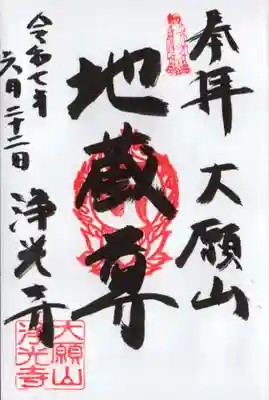 奉拝 大願山
地蔵尊
浄光寺
令和七年
六月二十二日
大願山
浄光寺